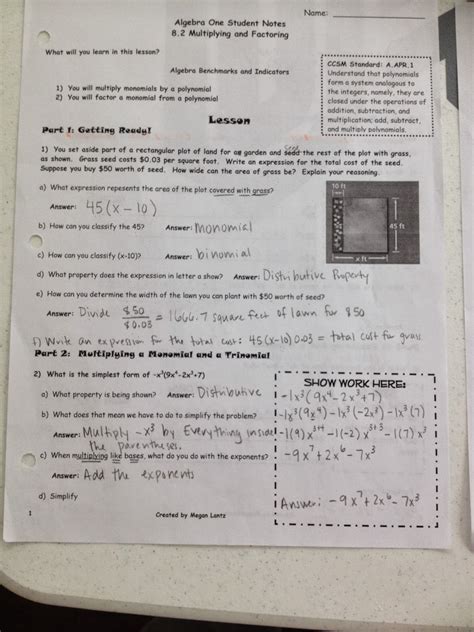 Name: ____________
Algebra One Student Notes
8.2 Multiplying and Factoring
What will you learn in this lesson?
Algebra Benchmarks and Indicators
1) You will multiply monomials by a polynomial
2) You will factor a monomial from a polynomial
CCSM Standard: A.APR.1
Understand that polynomials
form a system analogous to
the integers, namely, they are
closed under the operations of
addition, subtraction, and
multiplication; add, subtract,
and multiply polynomials.
Lesson
Part 1: Getting Ready!
1) You set aside part of a rectangular plot of land for a garden and seed the rest of the plot with grass,
as shown. Grass seed costs $0.03 per square foot. Write an expression for the total cost of the seed.
Suppose you buy $50 worth of seed. How wide can the area of grass be? Explain your reasoning.
a) What expression repesents the area of the plot covered with grass?
Answer: 45(x-10)
10 ft
45 ft
x ft
b) How can you classify the 45? Answer: monomial
c) How can you classify (x-10)? Answer: binomial
d) What property does the expression in letter a show? Answer: Distributive Property
e) How can you determine the width of the lawn you can plant with $50 worth of seed?
Answer: Divide $50 / $0.03 = 1666.7 square feet of lawn for $50
f) Write an expression for the total cost: 45(x-10)0.03 = total cost for grass
Part 2: Multiplying a Monomial and a Trinomial
2) What is the simplest form of -x³(9x⁴-2x³+7)
a) What property is being shown? Answer: Distributive
b) What does that mean we have to do to simplify the problem?
Answer: Multiply -x³ by Everything inside
the parentheses.
c) When multiplying like bases, what do you do with the exponents?
Answer: Add the exponents
d) Simplify
SHOW WORK HERE:
-1x³(9x⁴-2x³+7)
-1x³(9x⁴) -1x³(-2x³) -1x³(7)
-1(9)x³⁺⁴ -1(-2)x³⁺³ -1(7)x³
-9x⁷+2x⁶-7x³
Answer: -9x⁷+2x⁶-7x³
1
Created by Megan Lantz